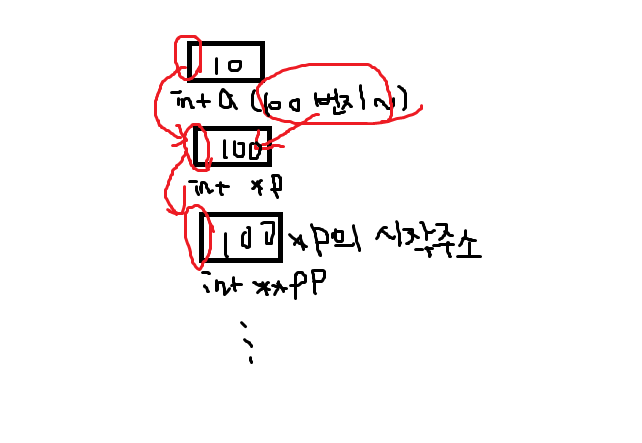 10
int a (100 번지~)
100
int *p
100 *p의 시작주소
int **pp